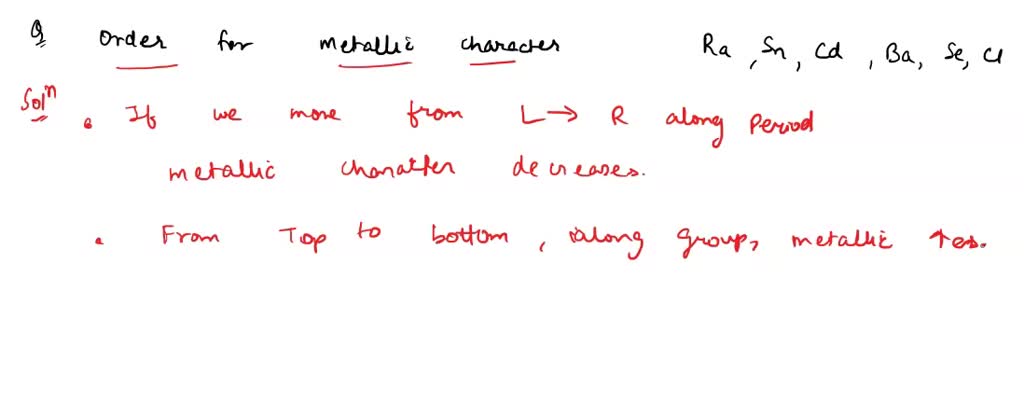 Q Order for metallic character Ra, Sn, Cd, Ba, Se, Cl
Solⁿ • If we move from L → R along period
metallic character decreases.
• From Top to bottom, along group, metallic ↑es.